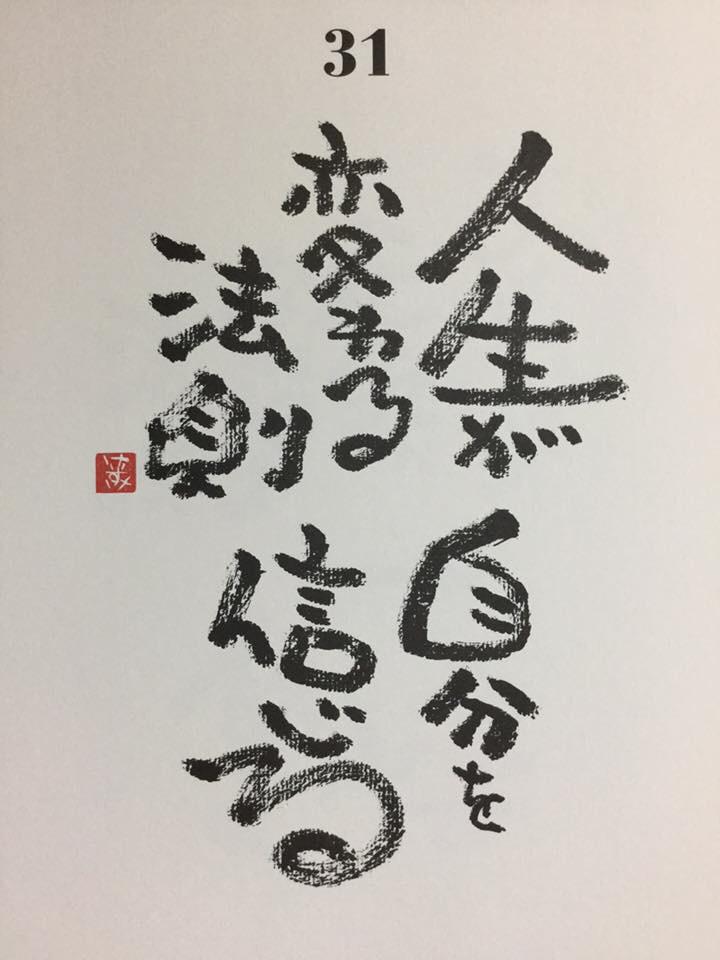 31
人生が
変われる
法則
自分を
信じる